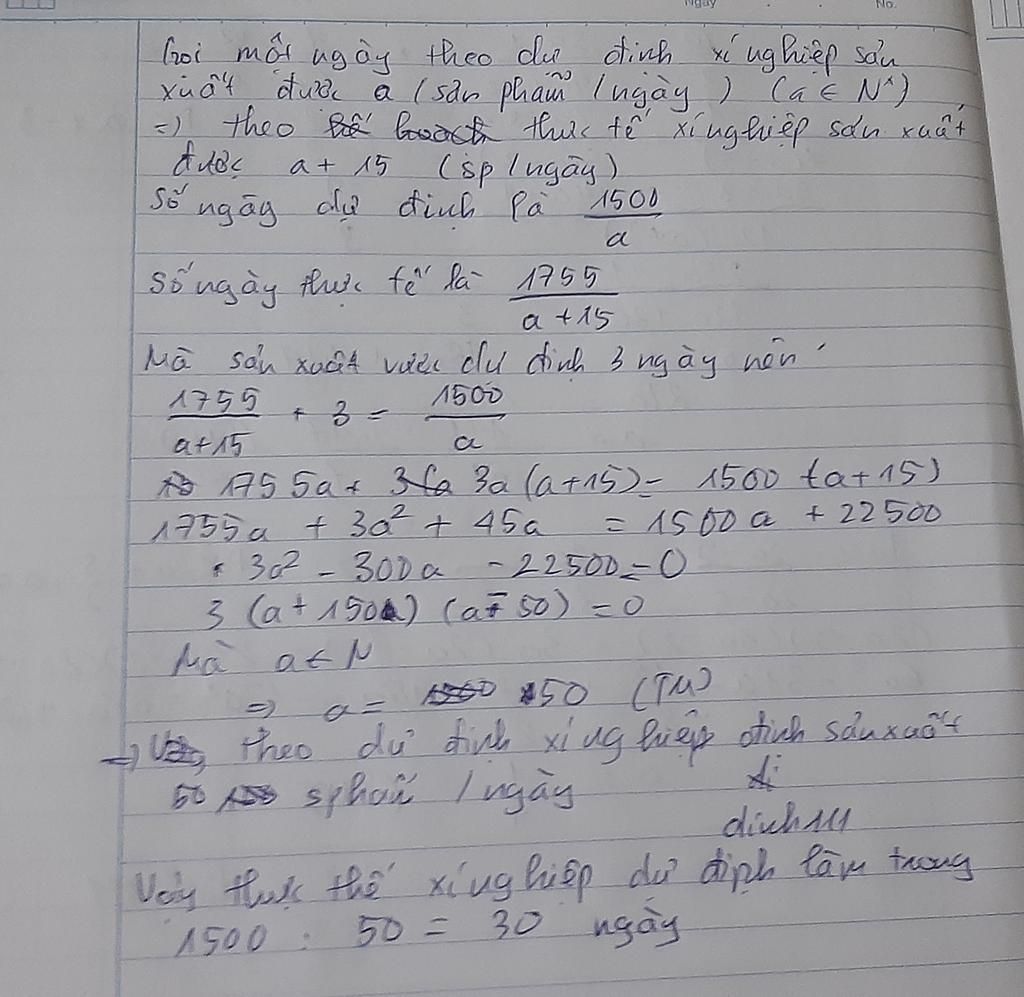 Ngày
No.
Gọi một ngày theo dự định xí nghiệp sản
xuất được a (sản phẩm / ngày) (a ∈ N*)
=) theo thực tế xí nghiệp sản xuất
được a + 15 (sp / ngày)
Số ngày dự định là 1500/a
Số ngày thực tế là 1755/(a+15)
Mà sản xuất vước dự định 3 ngày nên
1755/(a+15) + 3 = 1500/a
1755a + 3a (a+15) = 1500 (a+15)
1755a + 3a² + 45a = 1500a + 22500
3a² - 300a - 22500 = 0
3 (a + 150) (a - 50) = 0
Mà a ∈ N
=) a = 50 (TM)
=) theo dự định xí nghiệp định sản xuất
50 / ngày
định
Vậy thực thế xí nghiệp dự định làm trong
1500 : 50 = 30 ngày